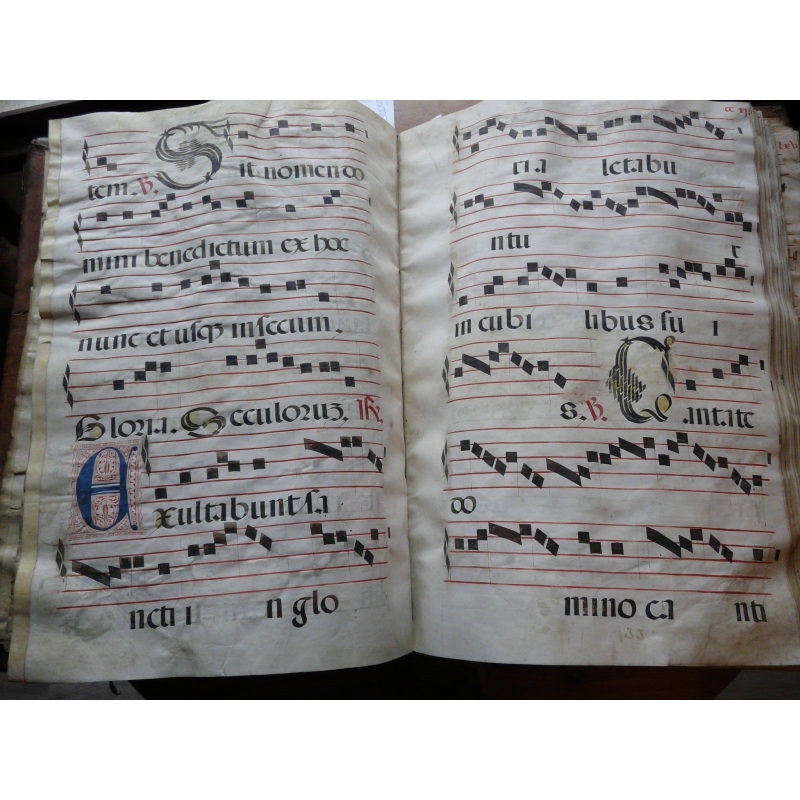 tem. ℟. Sit nomen do
mini benedictum ex hoc
nunc et usqꝫ in seculum.
Gloria. Seculoruꝫ.
Exultabunt sa
ncti i n glo
cc
ria letabu
ntu r
in cubi libus su i
s. ℟. Cantate
do
mino ca nti